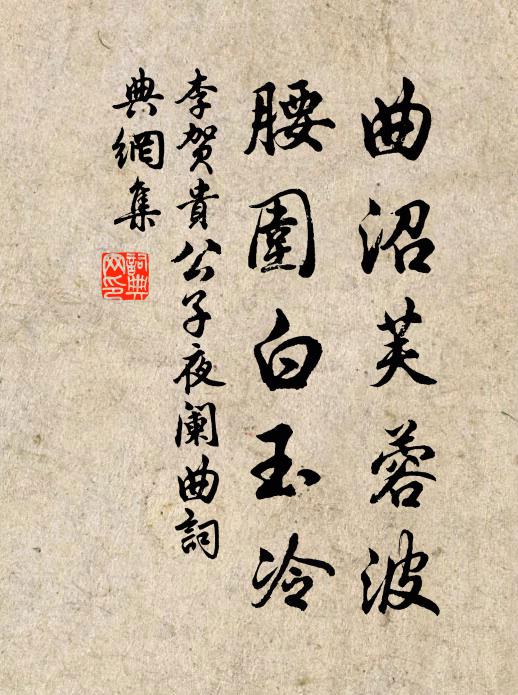 曲沼芙蓉波
腰圍白玉冷
李贺貴公子夜阑曲詞
典網集
詞典网印